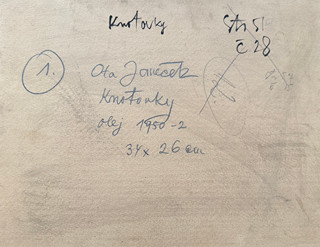 Knoťovky
Str 51
č 28
1.
Ota Janeček
Knoťovky
olej 1950-2
34 x 26 cm